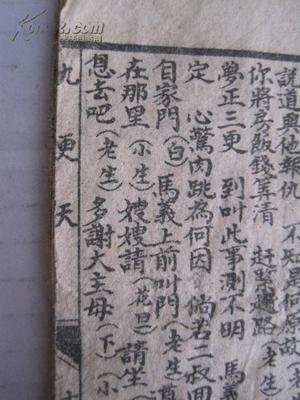 說道與他報仇 不知是何原故(老
你將房飯錢算清 赶緊趲路(老生
夢正三更 到叫此事測不明 馬義
定 心驚肉跳為何因 倘若二叔回
自家門(白)馬義上前叫門(老生
在那里(小生)嫂嫂請(花旦)請坐(
想去吧(老生)多謝大主母(下)(小
九更天